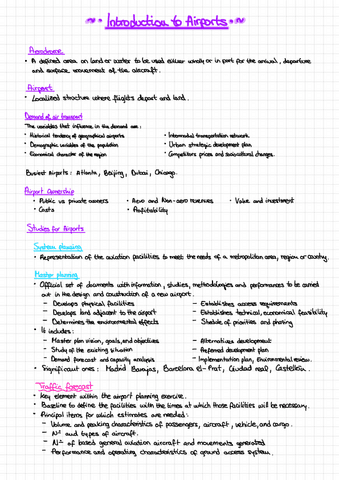 Introduction to Airports
Aerodrome
• A defined area on land or water to be used either wholly or in part for the arrival, departure
and surface movement of the aircraft.
Airport
• Localised structure where flights depart and land.
Demand of air transport
The variables that influence in the demand are:
• Historical tendency of geographical airports
• Intermodal transportation network.
• Demographic variables of the population
• Urban strategic development plan
• Economical character of the region
• Competitors prices and sociocultural changes.
Busiest airports: Atlanta, Beijing, Dubai, Chicago.
Airport Ownership
• Public vs private owners
• Aero and Non-aero revenues
• Value and investment
• Costs
• Profitability
Studies for Airports
System planning
• Representation of the aviation facilities to meet the needs of a metropolitan area, region or country.
Master planning
• Official set of documents with information, studies, methodologies and performances to be carried
out in the design and construction of a new airport.
– Develops physical facilities
– Establishes access requirements
– Develops land adjacent to the airport
– Establishes technical, economical feasibility
– Determines the environmental effects
– Shedule of priorities and phasing
• It includes:
– Master plan vision, goals, and objectives
– Alternatives development
– Study of the existing situation
– Preferred development plan
– Demand forecast and capacity analysis
– Implementation plan, Environmental review.
• Significant ones: Madrid Barajas, Barcelona el-Prat, Ciudad real, Castellón.
Traffic forecast
• Key element within the airport planning exercise.
• Baseline to define the facilities with the times at which those facilities will be necessary.
• Principal items for which estimates are needed:
– Volume and peaking characteristics of passengers, aircraft, vehicle, and cargo.
– Nº and types of aircraft.
– Nº of based general aviation aircraft and movements generated
– Performance and operating characteristics of ground access system.